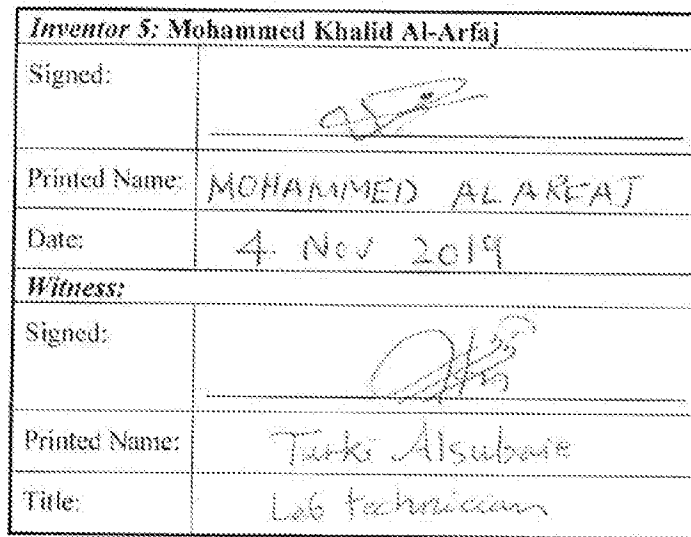 Inventor 5: Mohammed Khalid Al-Arfaj
Signed:
Printed Name: MOHAMMED AL ARFAJ
Date: 4 Nov 2019
Witness:
Signed:
Printed Name: Turki Alsubaie
Title: Lab technician